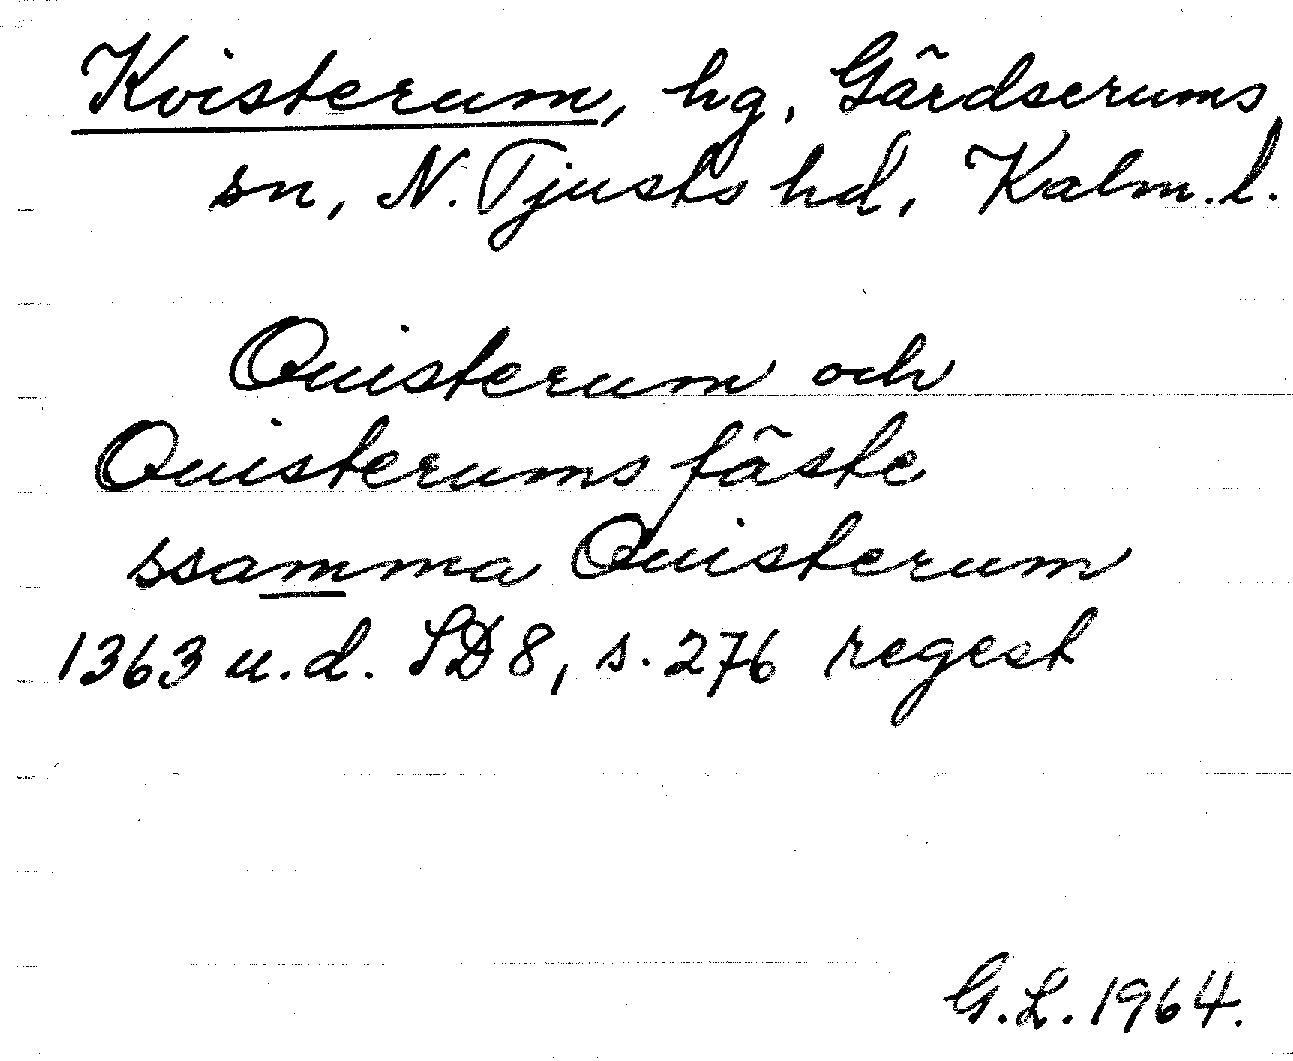 Kvisterum, hg, Gärdserums
sn, N. Tjusts hd, Kalm. l.
Quisterum och
Quisterums fäste
ssamma Quisterum
1363 u.d. SD 8, s. 276 regest
G. L. 1964.